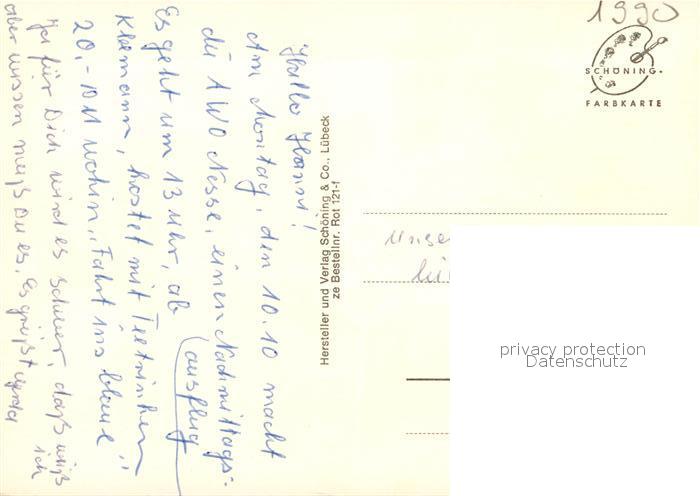 1990
SCHÖNING.
FARBKARTE
Hallo Hanni!
Am Montag, den 10.10 macht
die AWO Nesse, einen Nachmittags-
ausflug
Es geht um 13 Uhr, ab
Kleemann, kostet mit Teetrinken
20,- DM wohin, "Fahrt ins blaue"
Ja für Dich wird es schwer, daß weiß
ich
aber wissen mußt Du es. Es grüßt
Hersteller und Verlag Schöning & Co., Lübeck
ze Bestellnr. Rot 121-f
privacy protection
Datenschutz